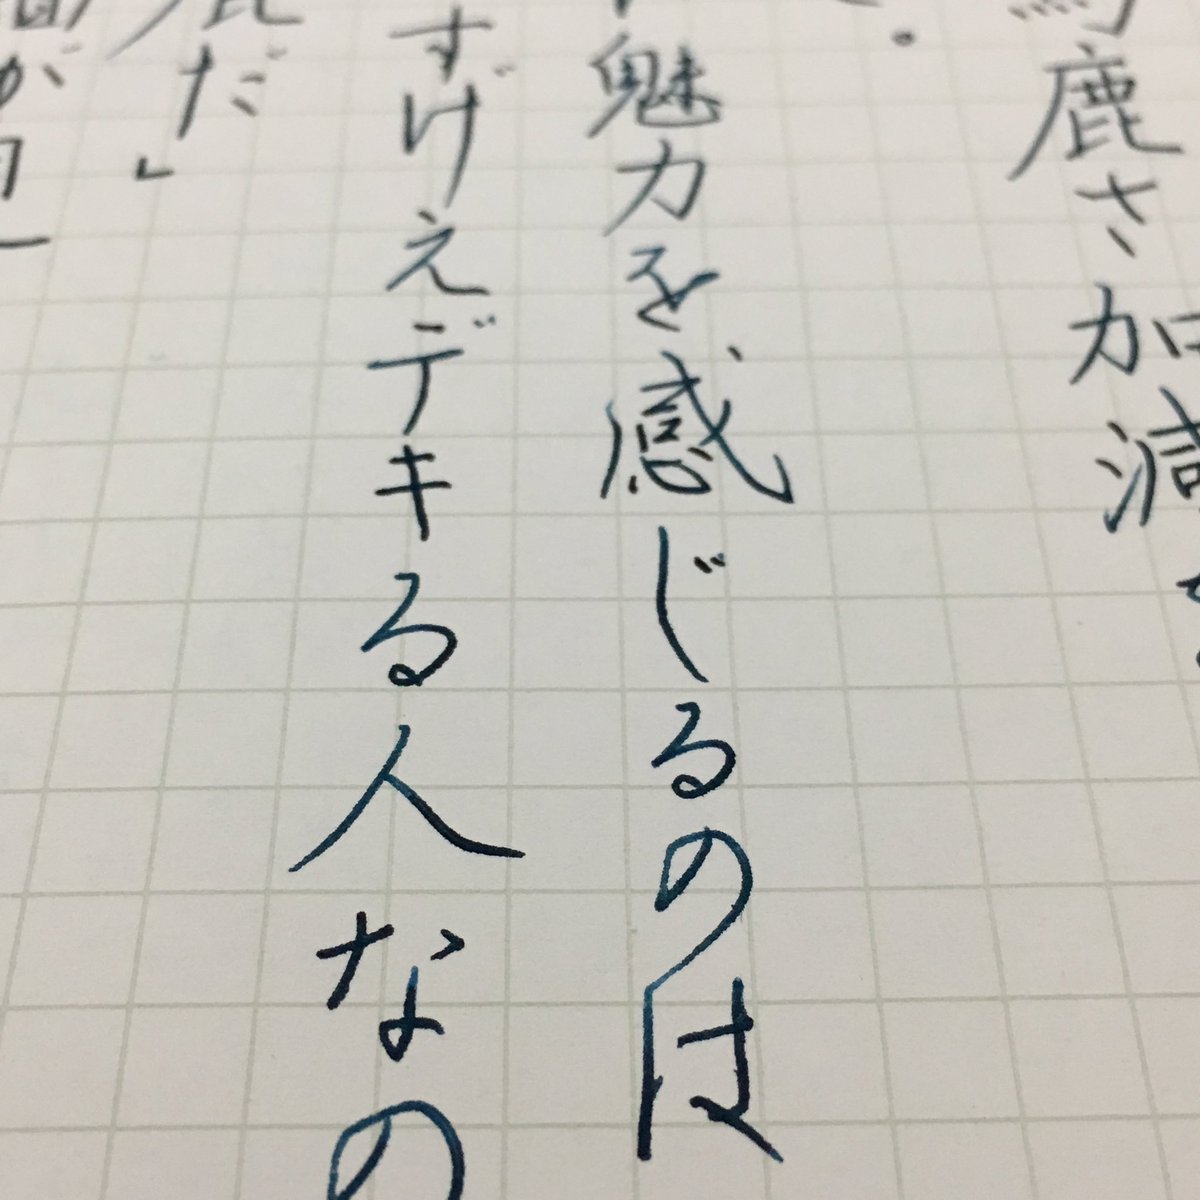 馬鹿さ加減
魅力を感じるのは
すげえデキる人なの
鹿だ」